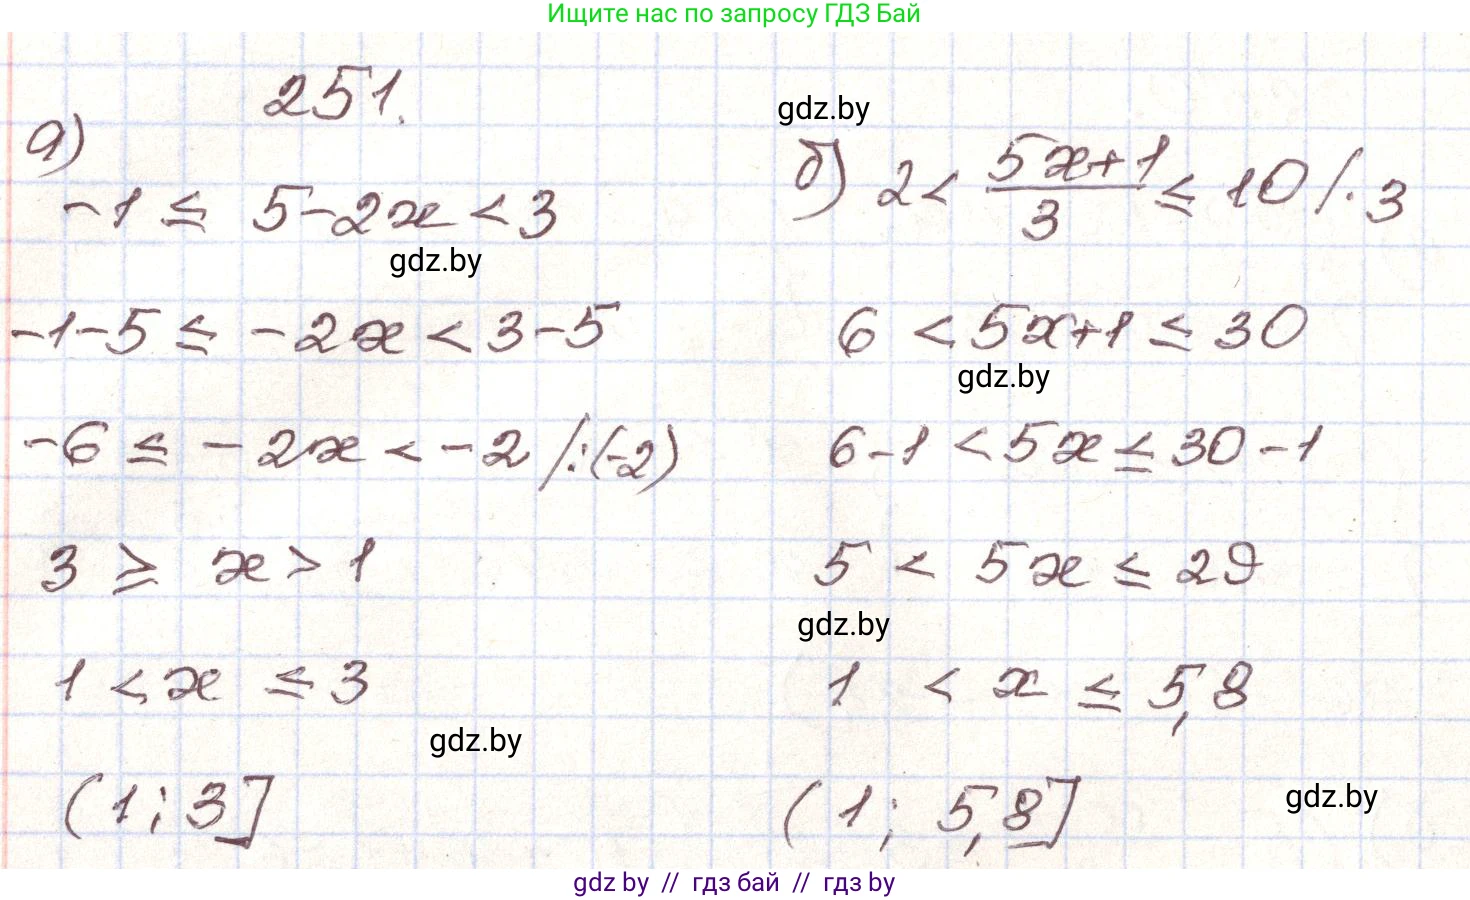 Ищите нас по запросу ГДЗ Бай
251.
а)
-1 ≤ 5-2x < 3
gdz.by
-1-5 ≤ -2x < 3-5
-6 ≤ -2x < -2 /:(-2)
3 ≥ x > 1
1 < x ≤ 3
gdz.by
(1; 3]
gdz.by
б) 2 < (5x+1)/3 ≤ 10 /·3
6 < 5x+1 ≤ 30
gdz.by
6-1 < 5x ≤ 30-1
5 < 5x ≤ 29
gdz.by
1 < x ≤ 5,8
gdz.by
(1; 5,8]
gdz by // гдз бай // гдз by